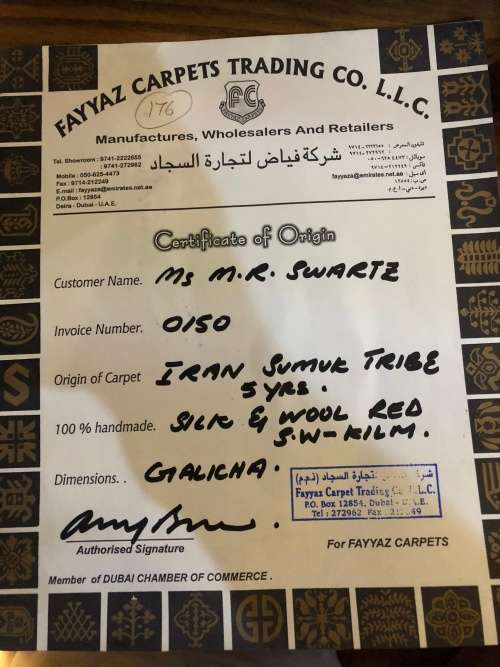 FAYYAZ CARPETS TRADING CO. L.L.C.
176
FC
Manufactures, Wholesalers And Retailers
Tel. Showroom : 9741-2222655
: 9741-272962
Mobile : 050-625-4473
Fax : 9714-212249
E.mail : fayyaza@emirates.net.ae
P.O.Box : 12854
Deira - Dubai - U.A.E.
شركة فياض لتجارة السجاد
fayyaza@emirates.net.ae
Certificate of Origin
Customer Name. Ms M.R. SWARTZ
Invoice Number. 0150
Origin of Carpet IRAN SUMUK TRIBE
5 YRS.
100 % handmade. SILK & WOOL RED
S.W-KILM.
Dimensions. . GALICHA.
تجارة السجاد (ذ.م.م)
Fayyaz Carpet Trading Co. L.L.C.
P.O. Box 12854, Dubai - U.A.E.
Tel : 272962 Fax
Authorised Signature
For FAYYAZ CARPETS
Member of DUBAI CHAMBER OF COMMERCE .